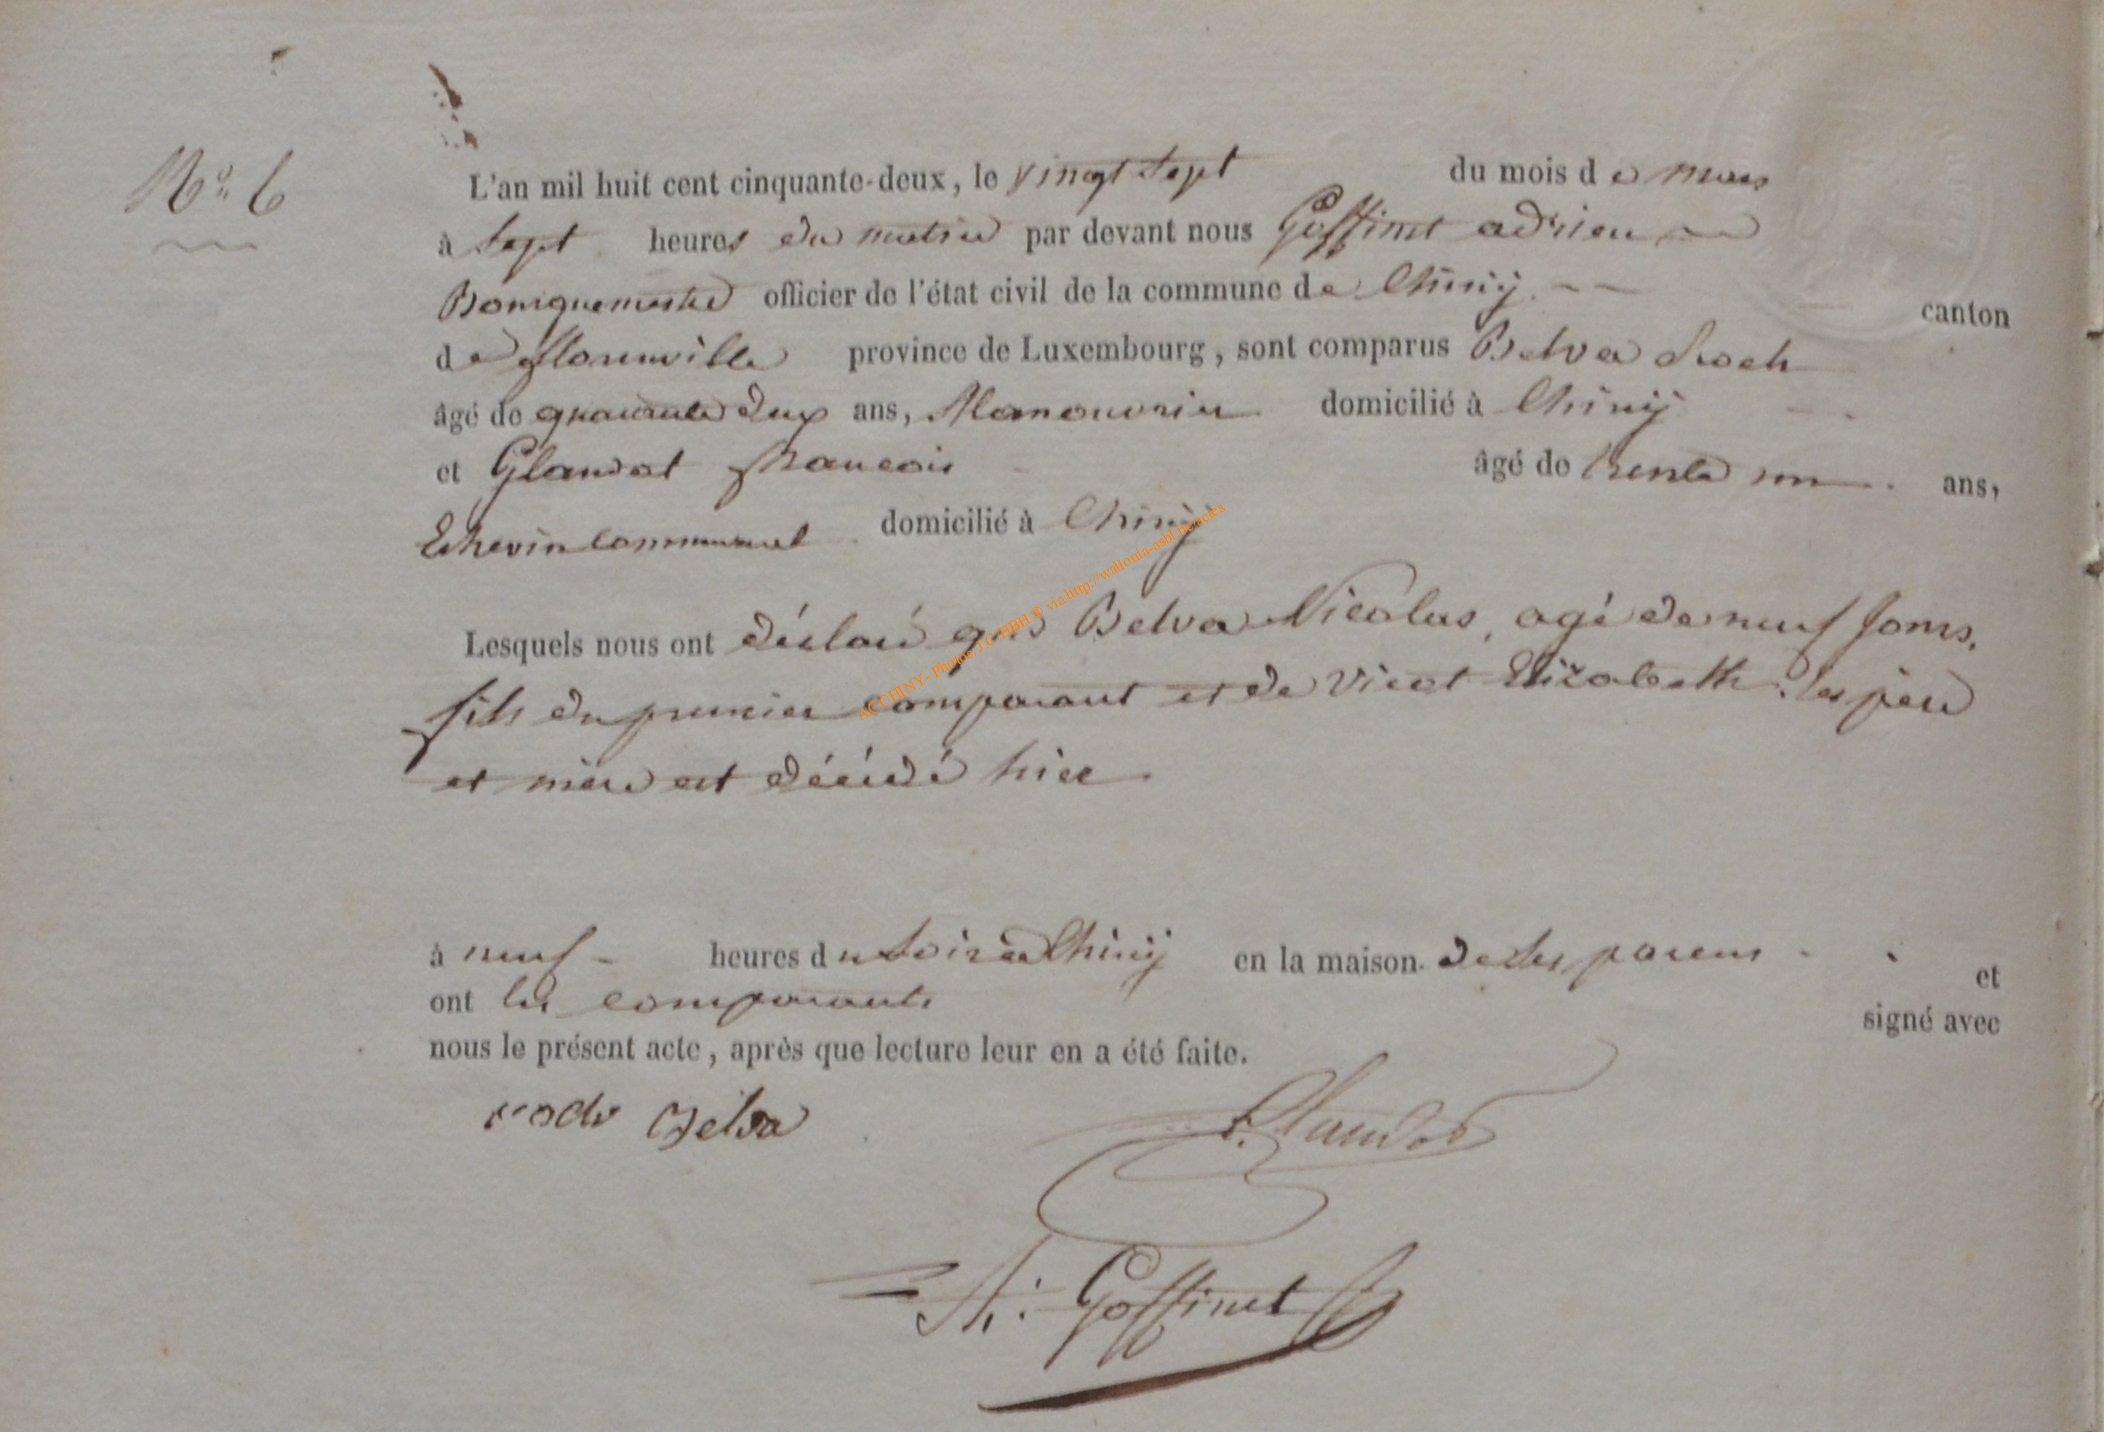 N° 6
L'an mil huit cent cinquante-deux, le vingt sept du mois de mars
à sept heures du matin par devant nous Goffinet adrien
Bourguemestre officier de l'état civil de la commune de Chiny canton
de florenville province de Luxembourg, sont comparus Belva Roch
âgé de quarante deux ans, Manouvrier domicilié à Chiny
et Glaudot francois âgé de trente un ans,
Echevin communal domicilié à Chiny
Lesquels nous ont déclaré que Belva Nicolas, agé de neuf jours,
fils du premier comparant et de Vicot Elizabeth, ses père
et mère est décédé hier
à neuf heures du soir à Chiny en la maison de ses parens et
ont les comparants signé avec
nous le présent acte, après que lecture leur en a été faite.
Belva
F. Glaudot
A: Goffinet
ACCHINY- Photos JCHBH © via http://wallonia-asbl.be/actes